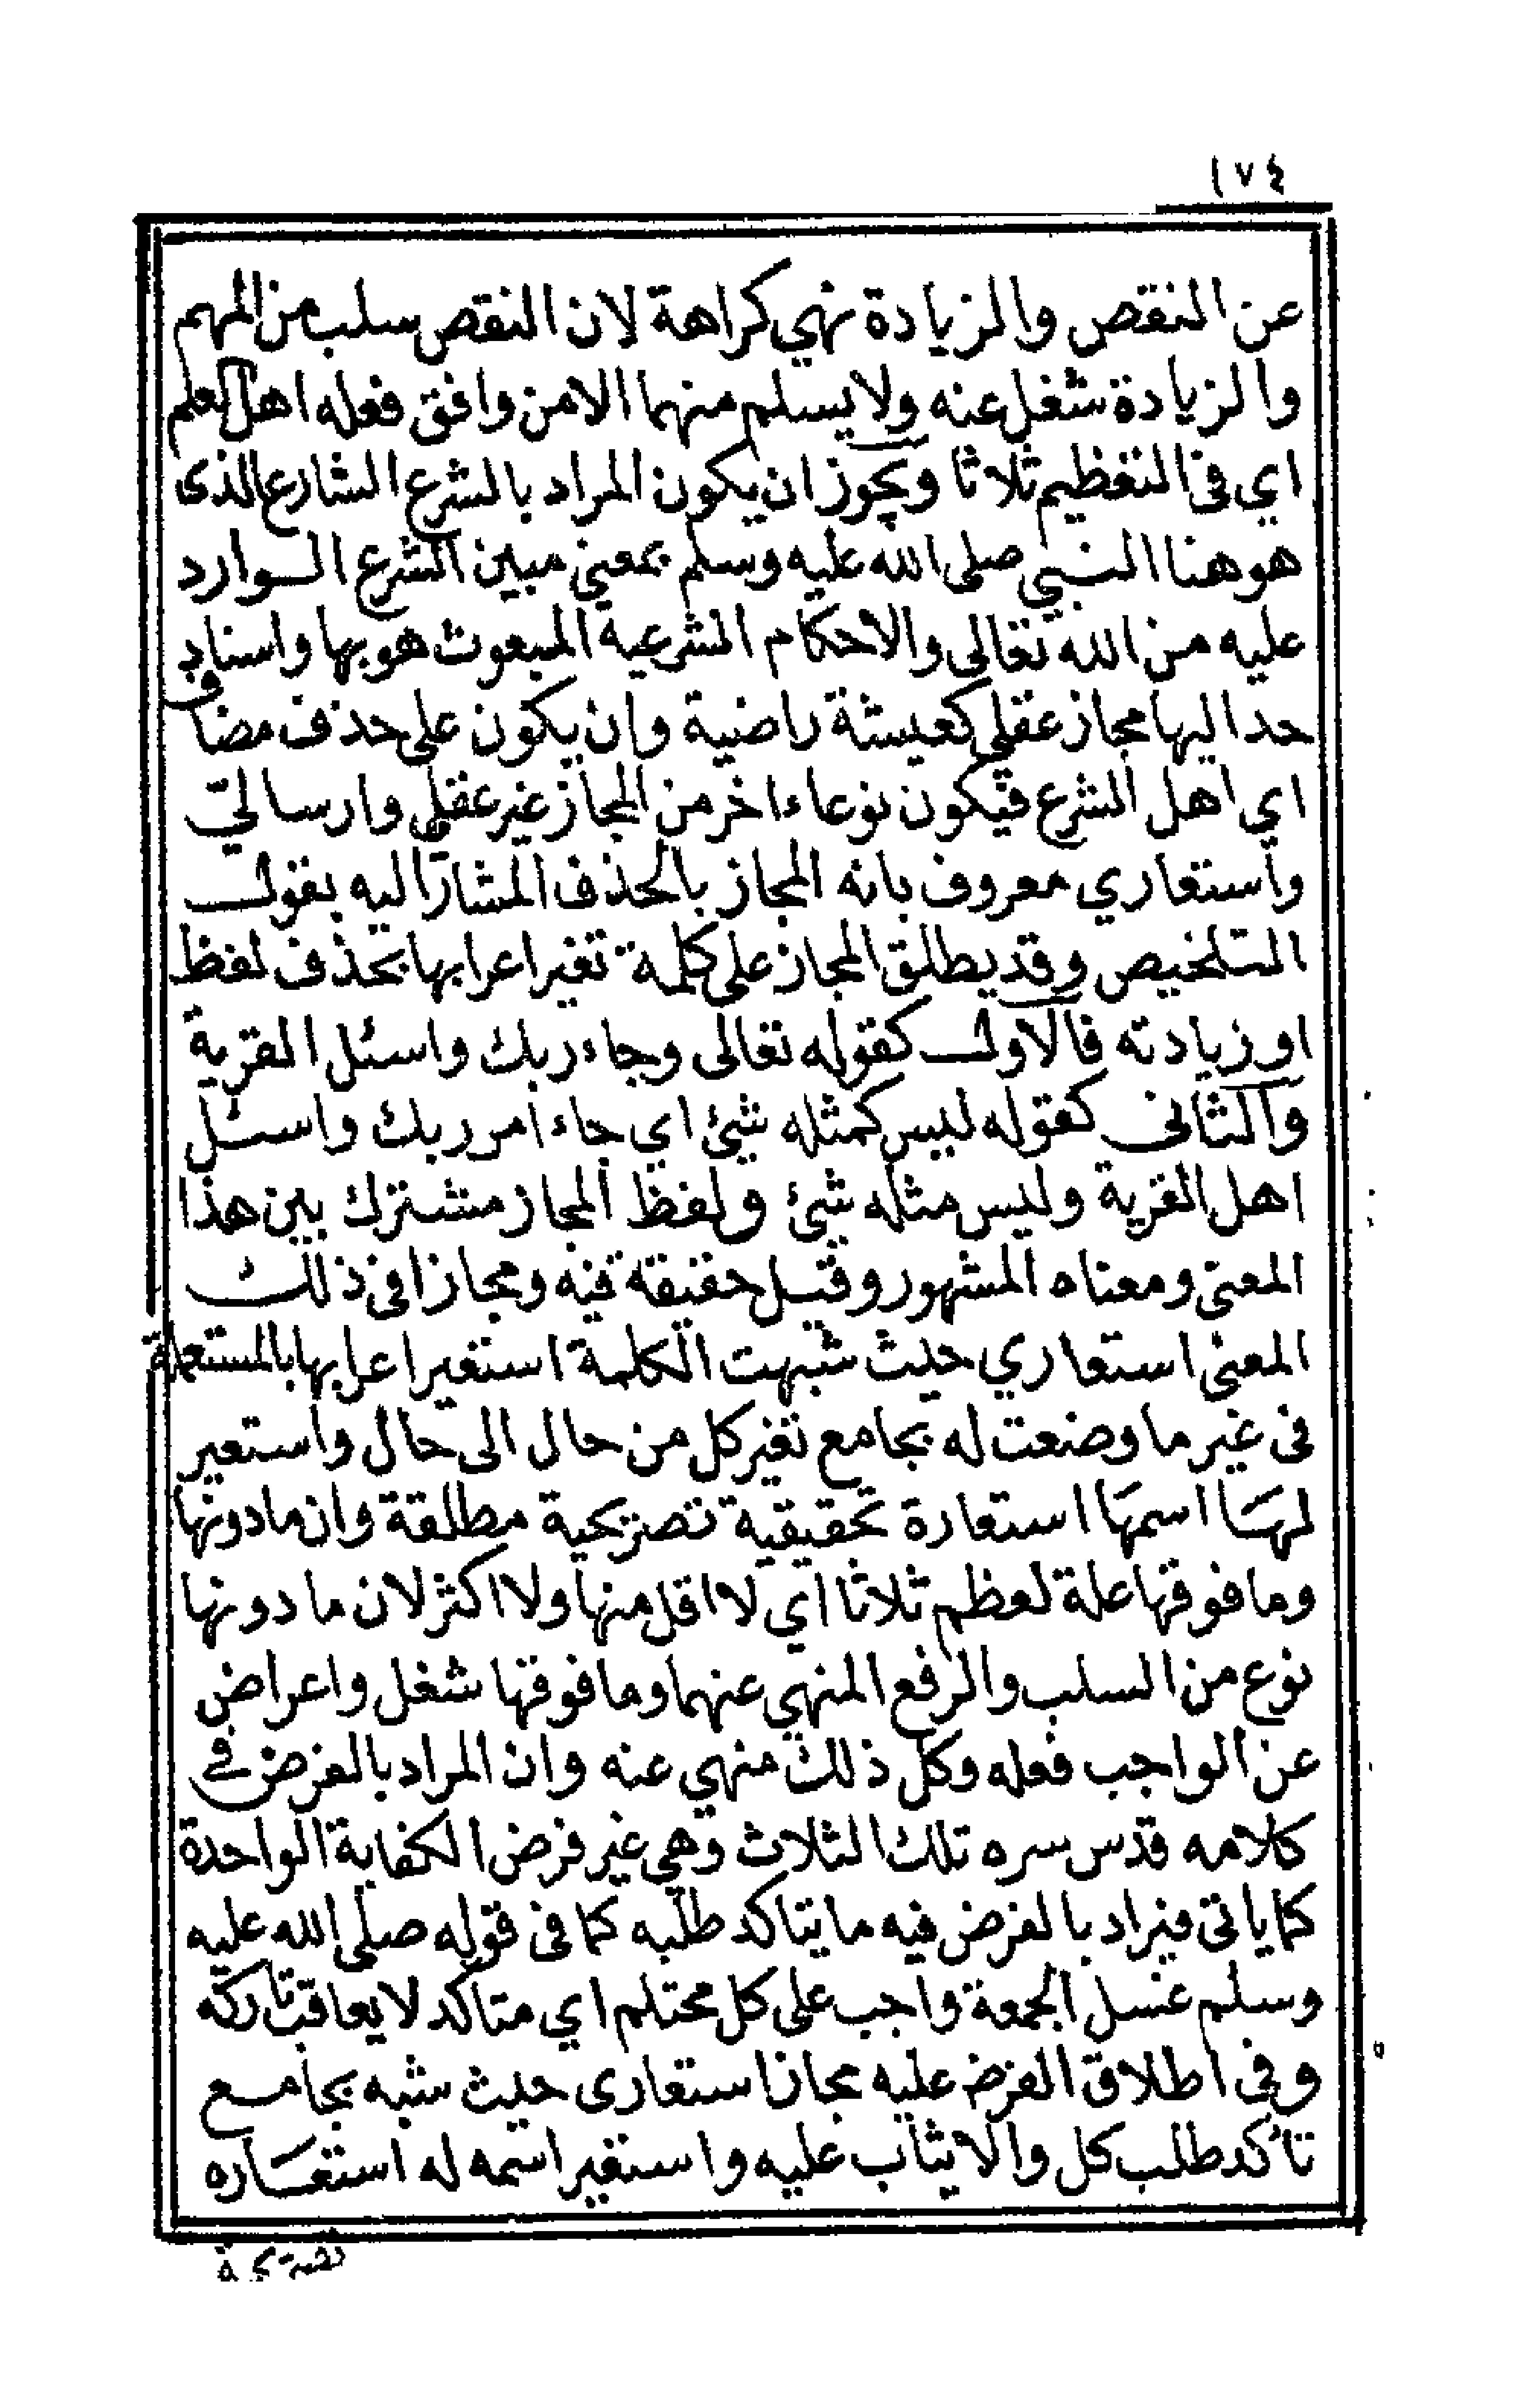 ١٧٤
عن النقص والزيادة نهي كراهة لان النقص سلب من المهم
والزيادة شغل عنه ولا يسلم منهما الا من وافق فعله اهل العلم
اي فى التعظيم ثلاثا ويجوز ان يكون المراد بالشرع الشارع الذى
هو هنا النبي صلى الله عليه وسلم بمعنى مبين الشرع الــوارد
عليه من الله تعالى والاحكام الشرعية المبعوث هو بها واسناد
حد اليها مجاز عقلي كعيشة راضية وان يكون على حذف مضاف
اي اهل الشرع فيكون نوعا ءاخر من المجاز غير عقلي وارساليّ
واستعاري معروف بانه المجاز بالحذف المشار اليه بقول
التلخيص وقد يطلق المجاز على كلمة تغير اعرابها بحذف لفظ
او زيادته فالاول كقوله تعالى وجاء ربك واسئل القرية
والثانى كقوله ليس كمثله شئ اي جاء امر ربك واسئل
اهل القرية وليس مثله شئ ولفظ المجاز مشترك بين هذا
المعنى ومعناه المشهور وقيل حقيقة فيه ومجازا فى ذلك
المعنى استعاري حيث شبهت الكلمة استغير اعرابها بالمستعملة
فى غير ما وضعت له بجامع تغير كل من حال الى حال واستعير
لهَا اسمهَا استعارة تحقيقية تصريحية مطلقة وان ما دونها
وما فوقها علة لعظم ثلاثا اي لا اقل منها ولا اكثر لان ما دونها
نوع من السلب والرفع المنهي عنهما وما فوقها شغل واعراض
عن الواجب فعله وكل ذلك منهي عنه وان المراد بالفرض في
كلامه قدس سره تلك الثلاث وهي غير فرض الكفاية الواحدة
كما ياتى فيراد بالفرض فيه ما يتاكد طلبه كما فى قوله صلى الله عليه
وسلم غسل الجمعة واجب على كل محتلم اي متاكد لا يعاقب تاركه
وفى اطلاق الفرض عليه مجاز استعارى حيث شبه بجامــع
تأكد طلب كل والاثاب عليه واستعير اسمه له استعَــاره
تصريحية